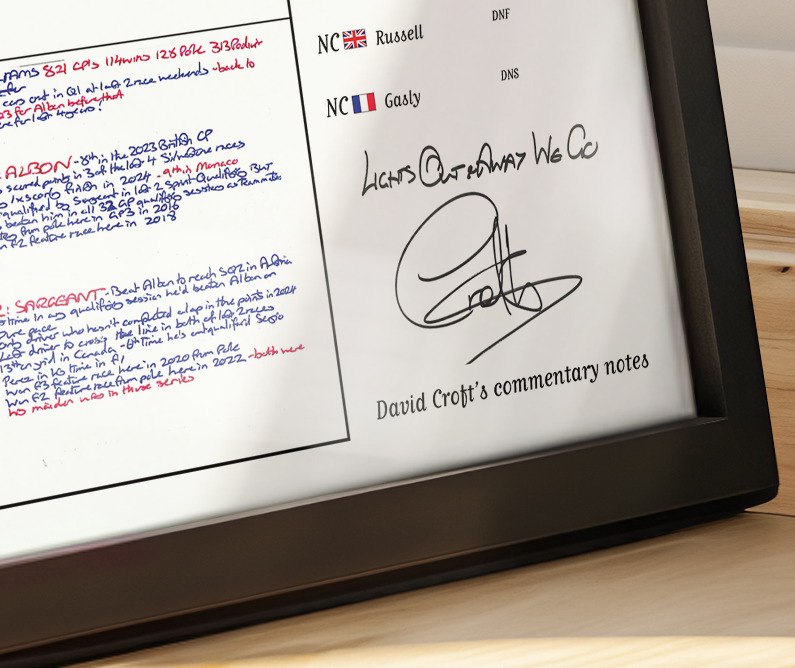 TAMS 821 GPs 114 wins 128 Pole 313 Podium
cars out in Q1 at last 2 race weekends - back to
23 for Albon before that
here for last 4 years!
ALBON - 8th in the 2023 British GP
scored points in 3 of the last 4 Silverstone races
1x scoring finish in 2024 - 9th in Monaco
qualified by Sargeant in last 2 Sprint Qualifying But
beaten him in all 32 GP qualifying sessions as teammates
from pole here in GP3 in 2016
F2 feature race here in 2018
: SARGEANT - Beat Albon to reach SQ2 in Austria
time in any qualifying session he'd beaten Albon on
pure pace
only driver who hasn't completed a lap in the points in 2024
Last driver to cross the line in both of last 2 races
13th on grid in Canada - 6th time he's outqualified Sergio
Perez in his time in F1
Won F3 feature race here in 2020 from Pole
Won F2 feature race from pole here in 2022 - both were
his maiden wins in those series
NC Russell DNF
NC Gasly DNS
LIGHTS OUT & AWAY WE GO
Croft
David Croft's commentary notes